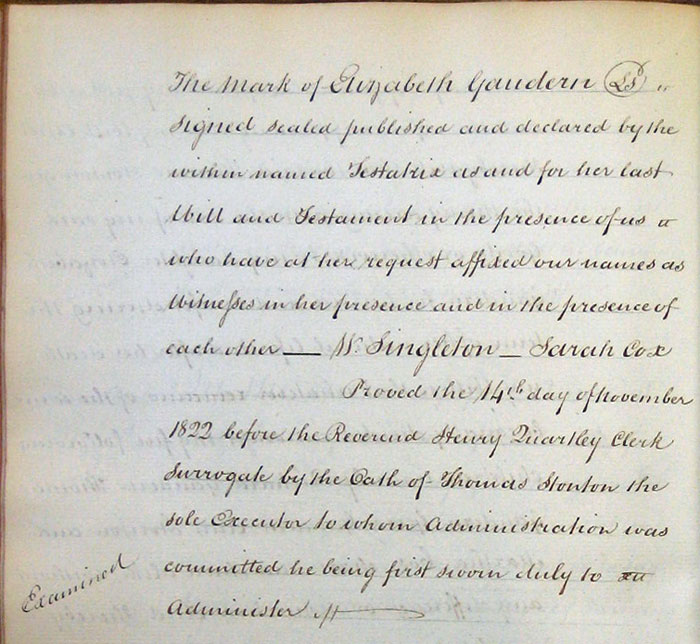 The Mark of Elizabeth Gaudern LS
signed sealed published and declared by the
within named Testatrix as and for her last
Will and Testament in the presence of us
who have at her request affixed our names as
Witnesses in her presence and in the presence of
each other — Wm Singleton — Sarah Cox
Proved the 14th day of November
1822 before the Reverend Henry Quartley Clerk
Surrogate by the Oath of Thomas Stonton the
sole Executor to whom Administration was
committed he being first sworn duly to
Examined
Administer